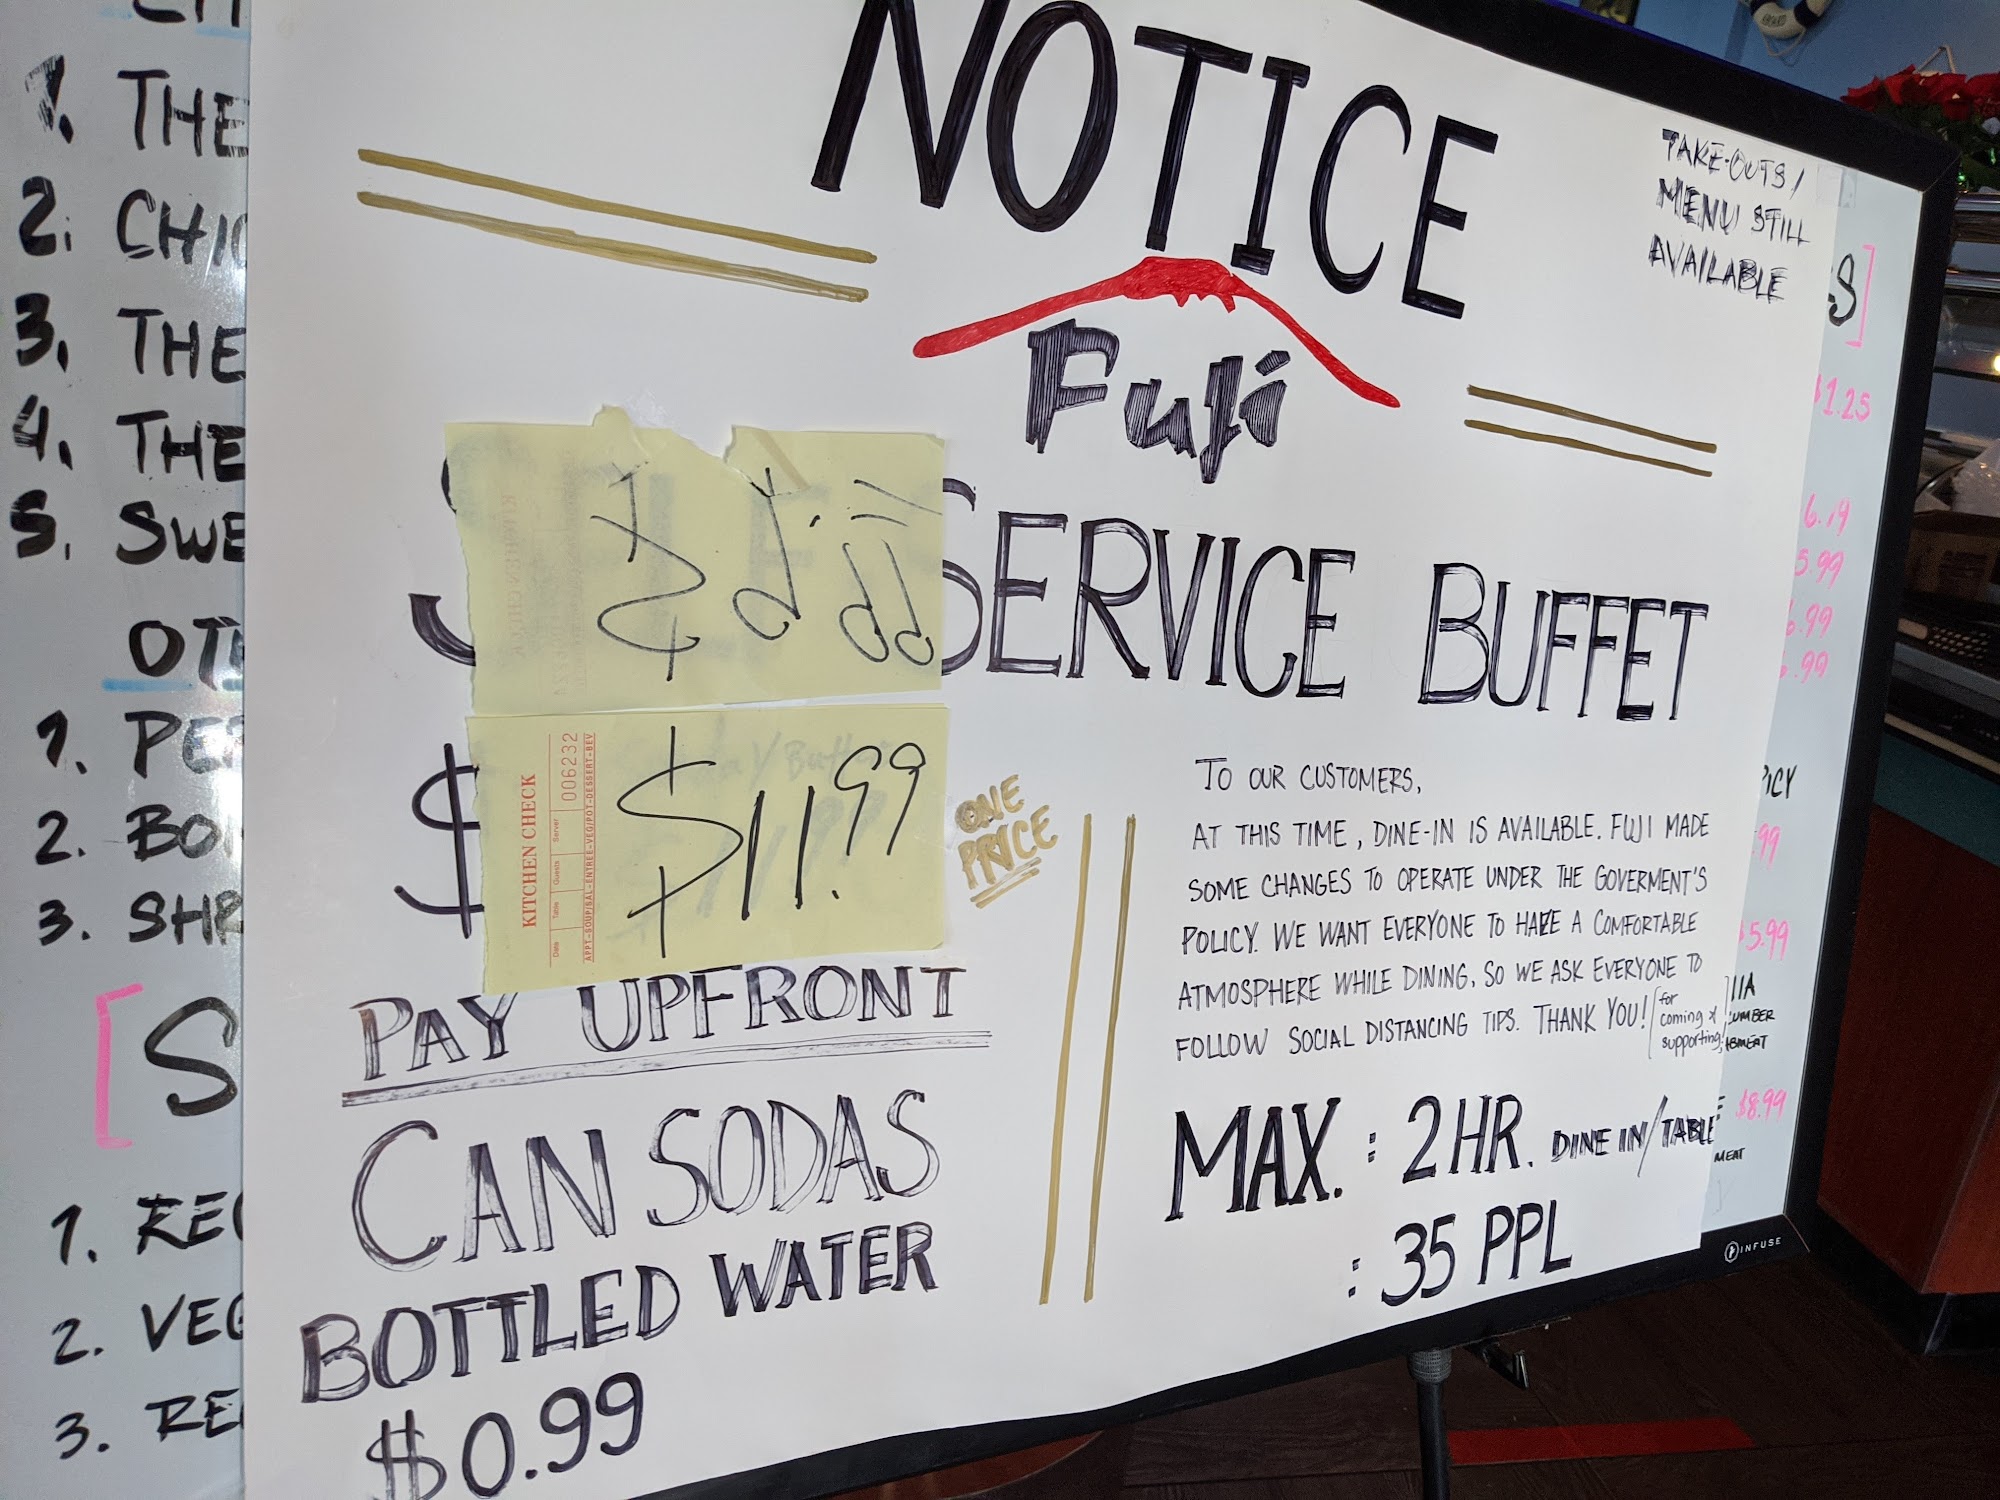 NOTICE
TAKE-OUTS/
MENU STILL
AVAILABLE
Fuji
SERVICE BUFFET
$11.99
KITCHEN CHECK
Date Table Guests Server 006232
APPT-SOUP/SAL-ENTREE-VEG/POT-DESSERT-BEV
$
ONE
PRICE
PAY UPFRONT
CAN SODAS
BOTTLED WATER
$0.99
TO OUR CUSTOMERS,
AT THIS TIME, DINE-IN IS AVAILABLE. FUJI MADE
SOME CHANGES TO OPERATE UNDER THE GOVERMENT'S
POLICY. WE WANT EVERYONE TO HAVE A COMFORTABLE
ATMOSPHERE WHILE DINING, SO WE ASK EVERYONE TO
FOLLOW SOCIAL DISTANCING TIPS. THANK YOU!
for
coming &
supporting!
MAX. : 2 HR. DINE IN/TABLE
: 35 PPL
1. THE
2. CHI
3. THE
4. THE
5. SWE
1. PE
2. BO
3. SHR
[S
1. RE
2. VEG
3. RE
S]
$1.25
6.19
5.99
6.99
.99
.99
$5.99
$8.99
MEAT
INFUSE